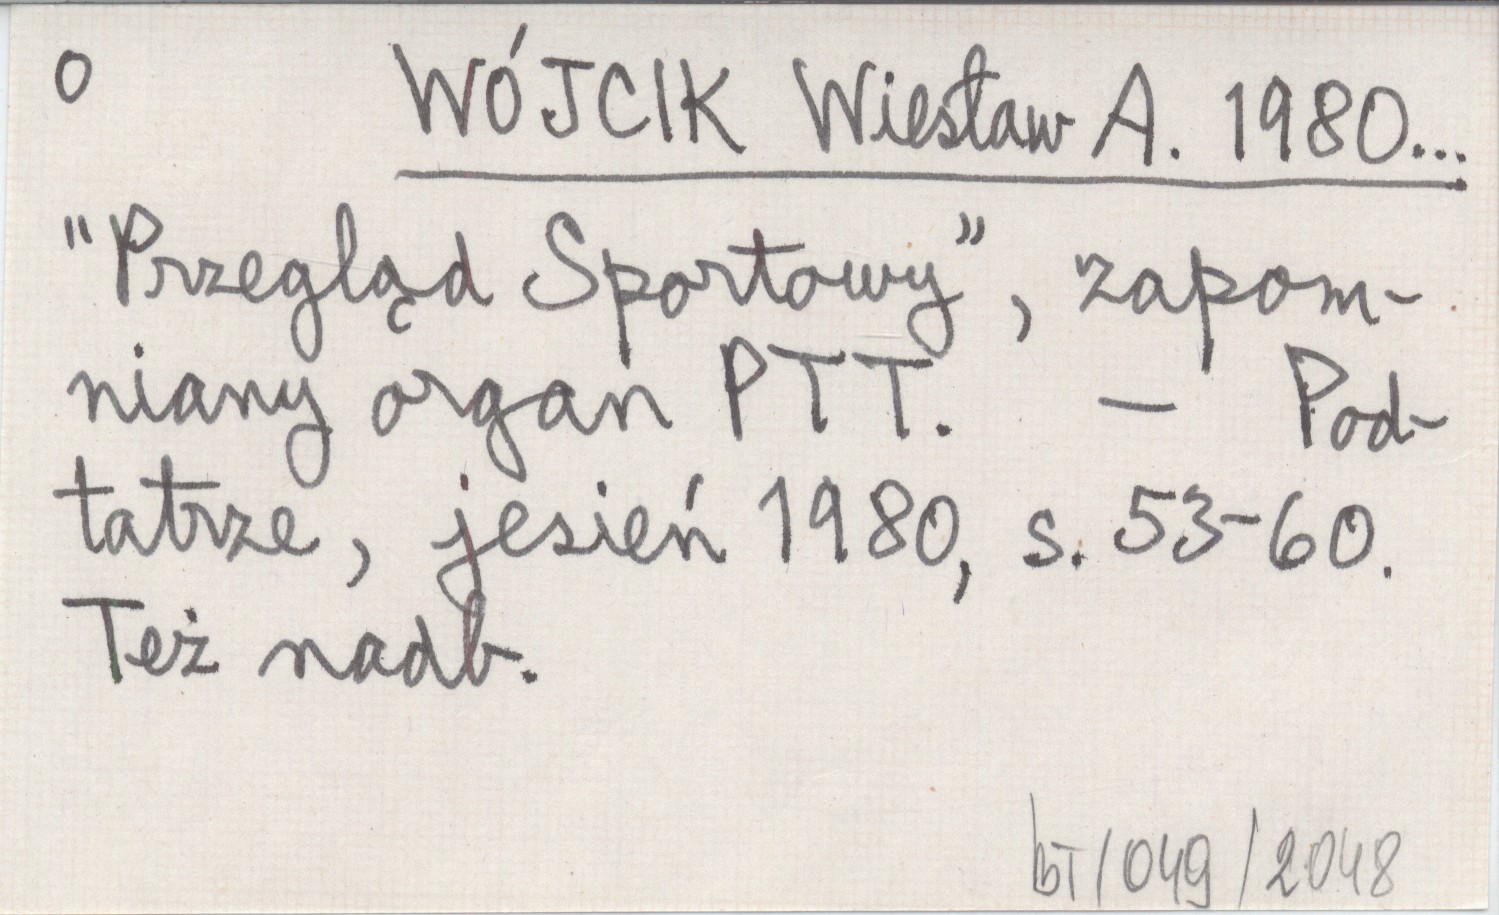 o WÓJCIK Wiesław A. 1980...
"Przegląd Sportowy", zapom-
niany organ PTT. — Pod-
tatrze, jesień 1980, s. 53-60.
Też nadb.
bT/049/2048